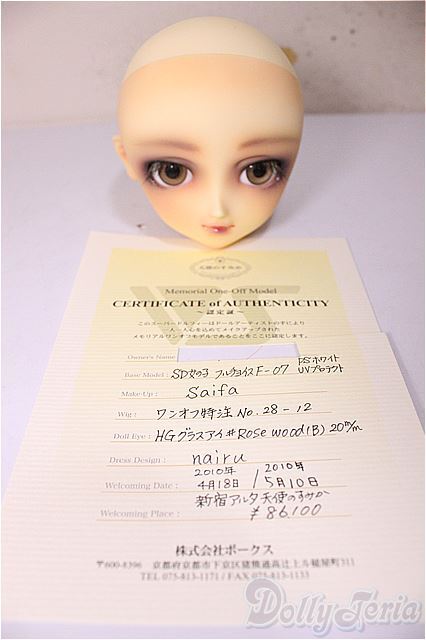 天使のすみか
Memorial One-Off Model
CERTIFICATE of AUTHENTICITY
～認定証～
このスーパードルフィーはドールアーティストの手により
一人一人心を込めてメイクアップされた
メモリアルワンオフモデルであることをここに認定します。
Owner's Name
Base Model : SD女の子 フルチョイスF-07 PSホワイト UVプロテクト
Make-Up : Saifa
Wig : ワンオフ特注 No.28-12
Doll Eye : HGグラスアイ#Rose wood(B) 20m/m
Dress Design : nairu
Welcoming Date : 2010年 4月18日 / 2010年 5月10日
Welcoming Place : 新宿アルタ天使のすみか
¥86,100
株式会社ボークス
〒600-8396 京都府京都市下京区猪熊通高辻上ル槌屋町311
TEL 075-813-1171 / FAX 075-813-1133
DollyTeria